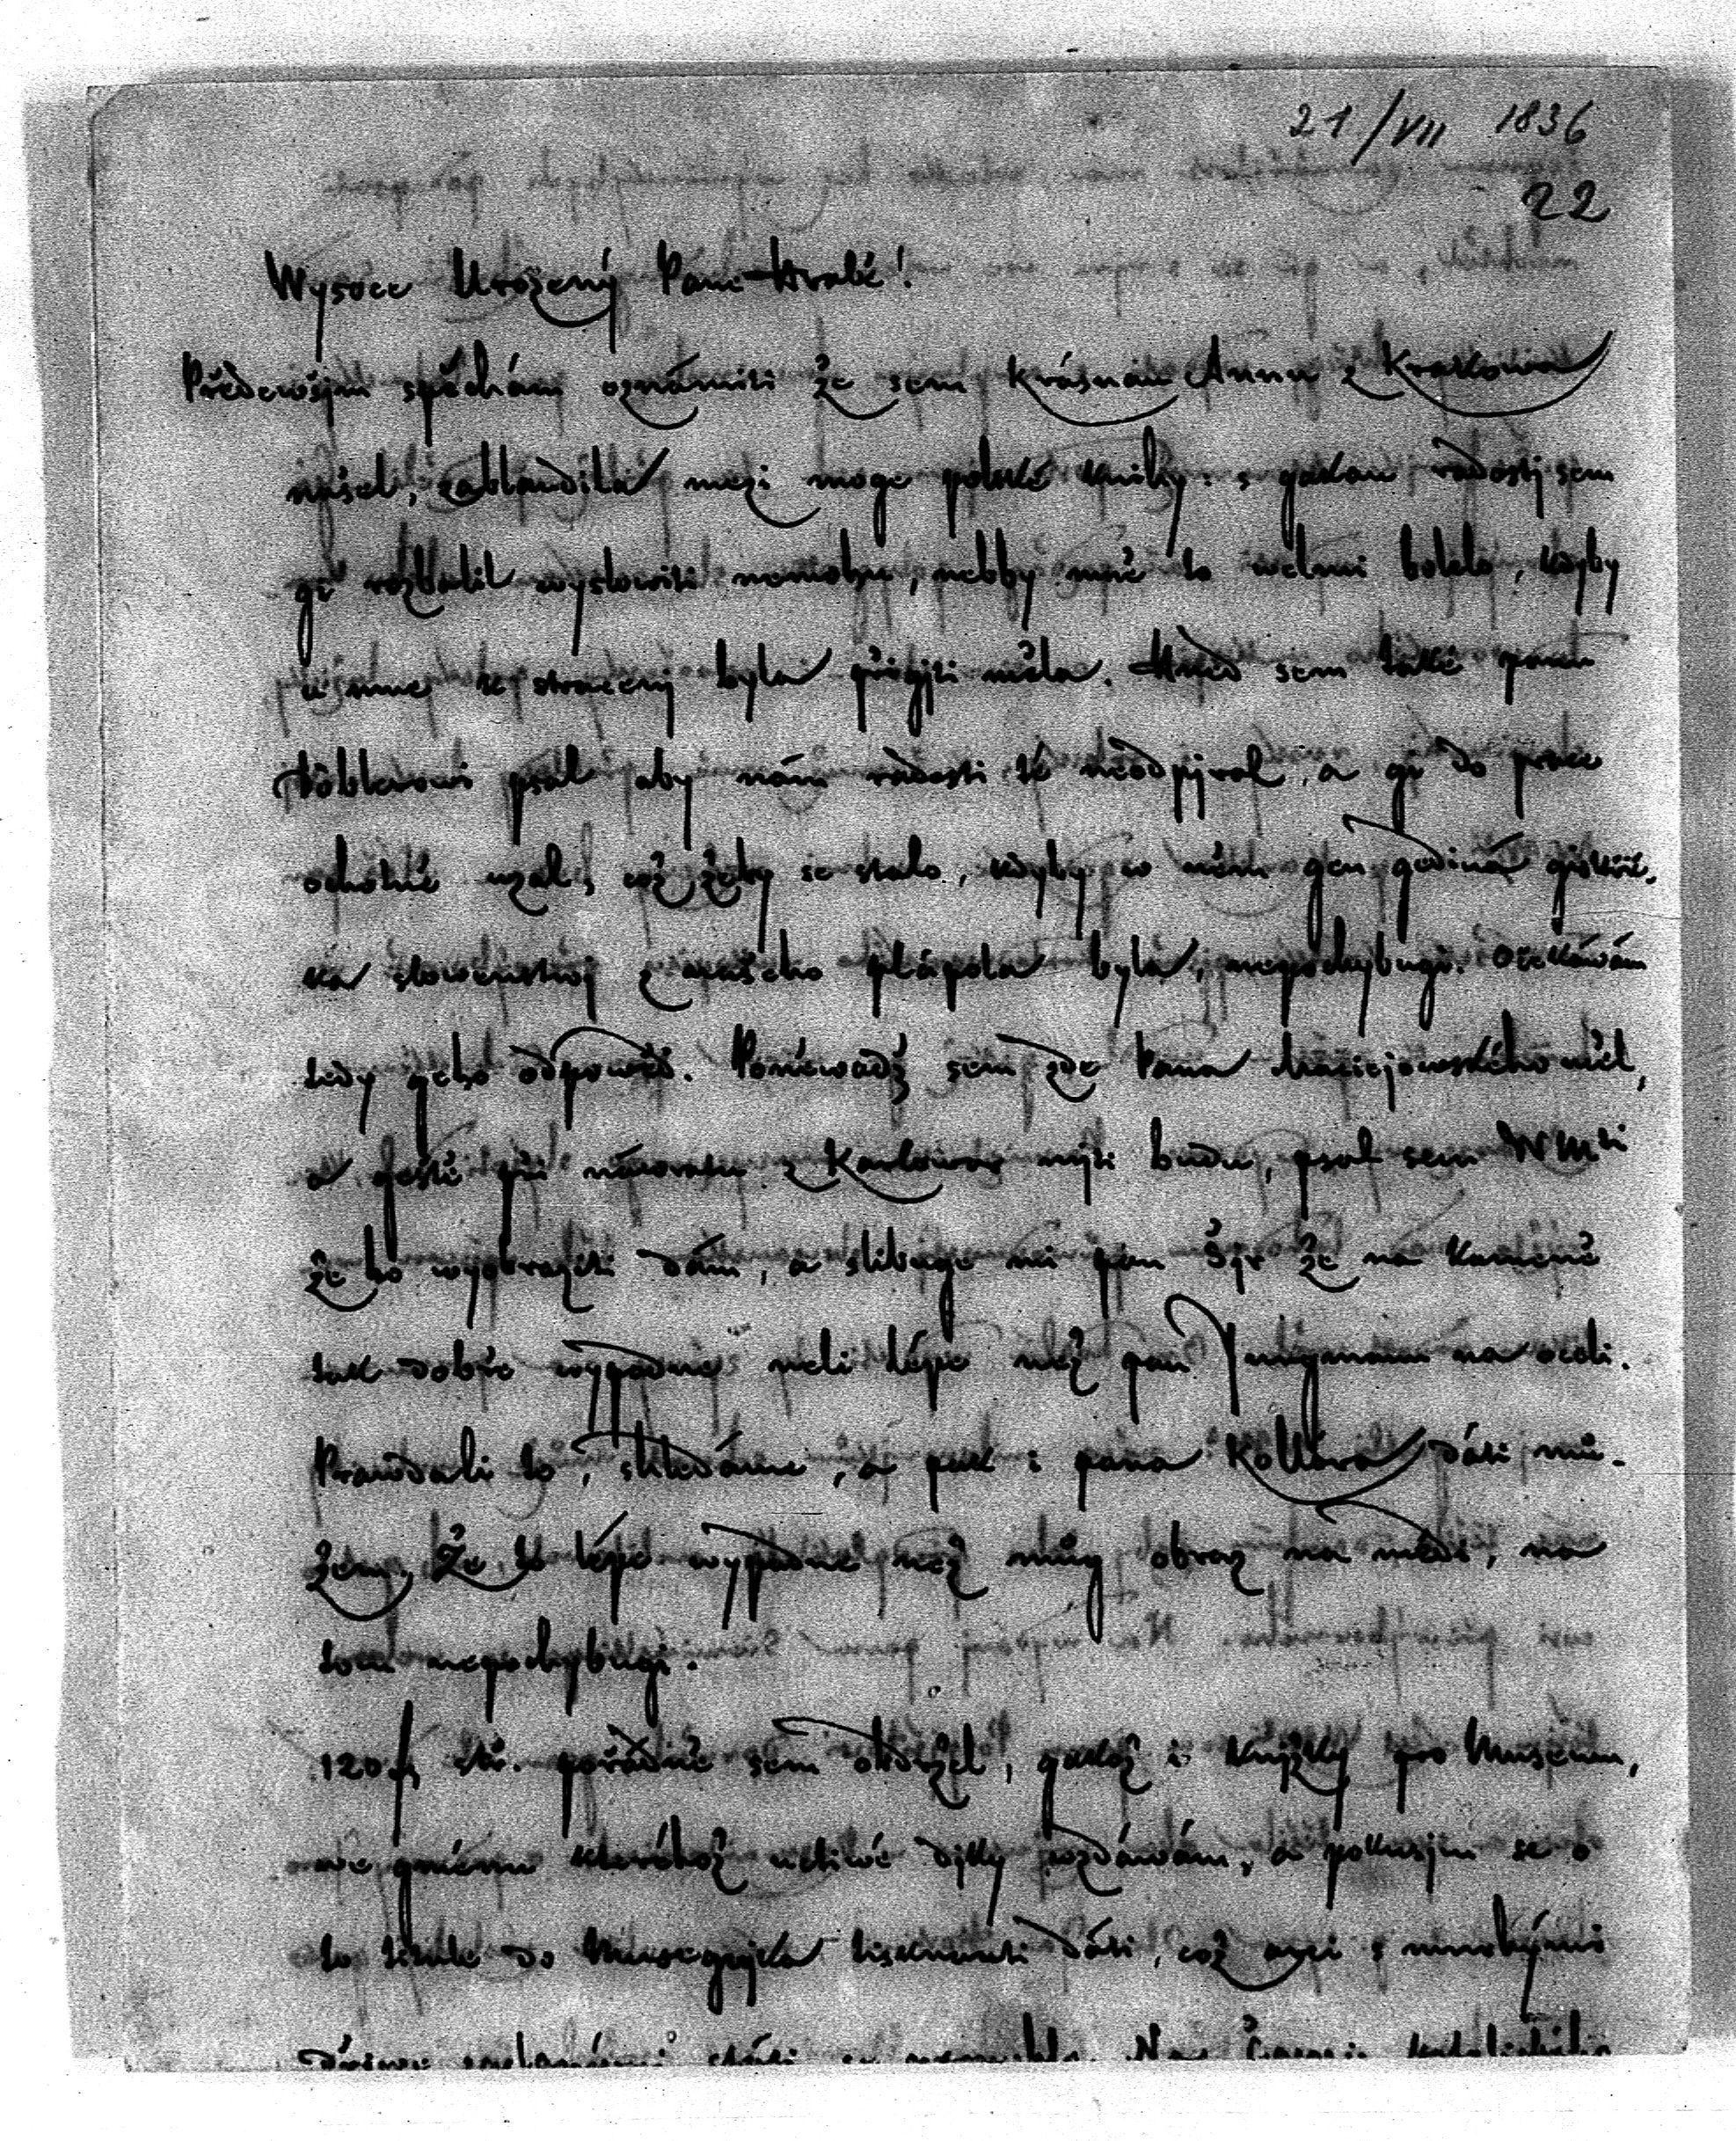 21/VII 1836
22
Wysoce Urozený Pane Hrabě!
Předewšjm spěchám oznámiti že sem krásnau Annu z Krakowa
našel, zablaudilá mezi moge polské knihy: s gakau radostj sem
gi rozbalil wyslowiti nemohu, nebby mně to welmi bolelo, kdyby
u mne k straceny byla přigjti měla. Hned sem také panu
psal aby nám radosti té neodpjral, a gi do práce
ochotně uzal, což žeby se stalo, kdyby w něm gen gediná giskřič-
ka slowenstwj z našeho plápola byla, nepochybugi. Očekáwám
tedy geho odpowěd. Poněwadž sem zde Pana Maciejowského měl,
a geště při náwratu z Karlowar mjti budu, psal sem WMti
že ho wyobraziti dám, a slibuge mi pan Šjr že na kameně
tak dobře wypadne neli lépe než pan Jungmann na oceli.
Prawdali to, shledáme, a pak i pana Kollára dáti mů-
žem. Že to lépe wypadne než můg obraz na mědi, na
tom nepochybugi.
120 f stř. pořádně sem obdržel, gakož i knjžky pro Museum,
we gménu kteréhož uctiwé djky wzdáwám, a pokusjm se o
to titule do Musegnjka tisknauti dáti, což arci s mnohými
dáti se nemohlo. Na Časopis katolického